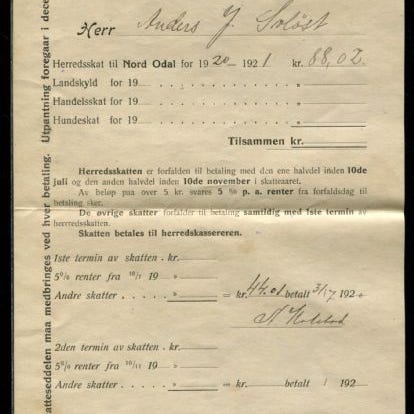 Herr Anders J. Solöst
Herredsskat til Nord Odal for 1920-1921 kr. 88,02
Landskyld for 19 „
Handelsskat for 19 „
Hundeskat for 19 „
Tilsammen kr.
Herredsskatten er forfalden til betaling med den ene halvdel inden 10de
juli og den anden halvdel inden 10de november i skatteaaret.
Av beløp paa over 5 kr. svares 5 % p. a. renter fra forfaldsdag til
betaling sker.
De øvrige skatter forfalder til betaling samtidig med 1ste termin av
herredsskatten.
Skatten betales til herredskassereren.
1ste termin av skatten kr.
5% renter fra 10/7 19 „
Andre skatter „ = kr. 44.01 betalt 3/7 1920
N Holstad
2den termin av skatten kr.
5% renter fra 10/11 19 „
Andre skatter „ = kr. betalt / 192
atteseddelen maa medbringes ved hver betaling. Utpantning foregaar i dece